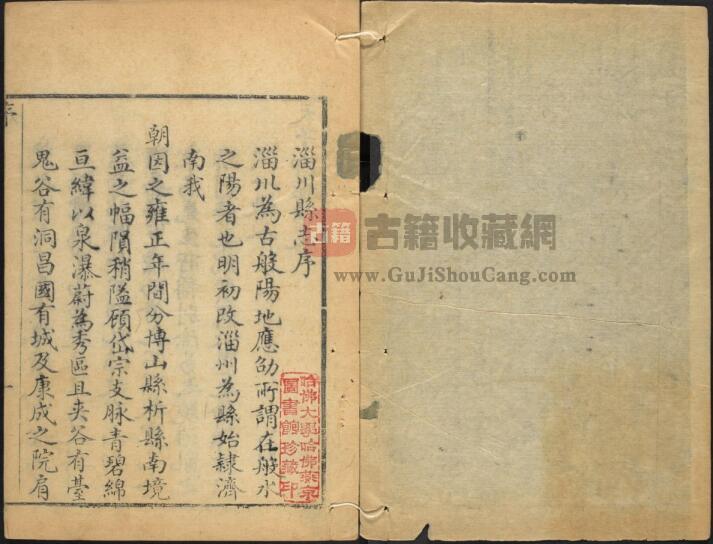 淄川縣志序
淄川為古般陽地應劭所謂在般水
之陽者也明初改淄州為縣始隸濟
南我
朝因之雍正年間分博山縣析縣南境
益之幅隕稍隘頋岱宗支脉青碧綿
亘緯以泉瀑蔚為秀區且夹谷有臺
鬼谷有洞昌國有城及康成之院肩
序
一
哈佛大學哈佛燕京
圖書館珍藏印
古籍
古籍收藏網
www.GuJiShouCang.com